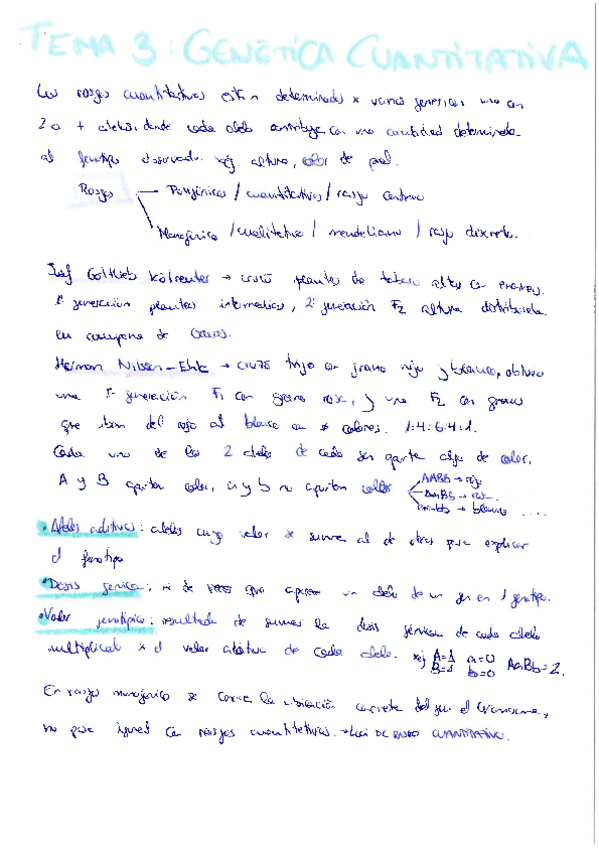 TEMA 3: GENÉTICA CUANTITATIVA
Los rasgos cuantitativos están determinados x varios genes, cada uno con
2 o + alelos, donde cada alelo contribuye con una cantidad determinada
al fenotipo observado. ej altura, color de piel.
Rasgos — Poligénicos / cuantitativos / rasgo continuo
Monogénico / cualitativo / mendeliano / rasgo discreto.
Josef Gottlieb Kölreuter → cruzó plantas de tabaco altas con enanas.
1ª generación plantas intermedias, 2ª generación F2 altura distribuida
en campana de Gauss.
Herman Nilsson-Ehle → cruzó trigo con grano rojo y blanco, obtuvo
una 1ª generación F1 con grano rosa, y una F2 con granos
que iban del rojo al blanco con ≠ colores. 1:4:6:4:1.
Cada uno de los 2 alelos de cada gen aporta algo de color.
A y B aportan color, a y b no aportan color
AABB → rojo
AaBb → rosa
aabb → blanco ....
• Alelos aditivos: alelos cuyo valor se suma al de otros para explicar
el fenotipo
• Dosis génica: nº de veces que aparece un alelo de un gen en 1 genotipo.
• Valor genotípico: resultado de sumar la dosis génica de cada alelo
multiplicado x el valor aditivo de cada alelo. ej A=1 a=0 AaBb=2.
B=1 b=0
En rasgo monogénico se conoce la ubicación correcta del gen en el cromosoma,
no pasa igual con rasgos cuantitativos. → LOCI DE RASGO CUANTITATIVO.